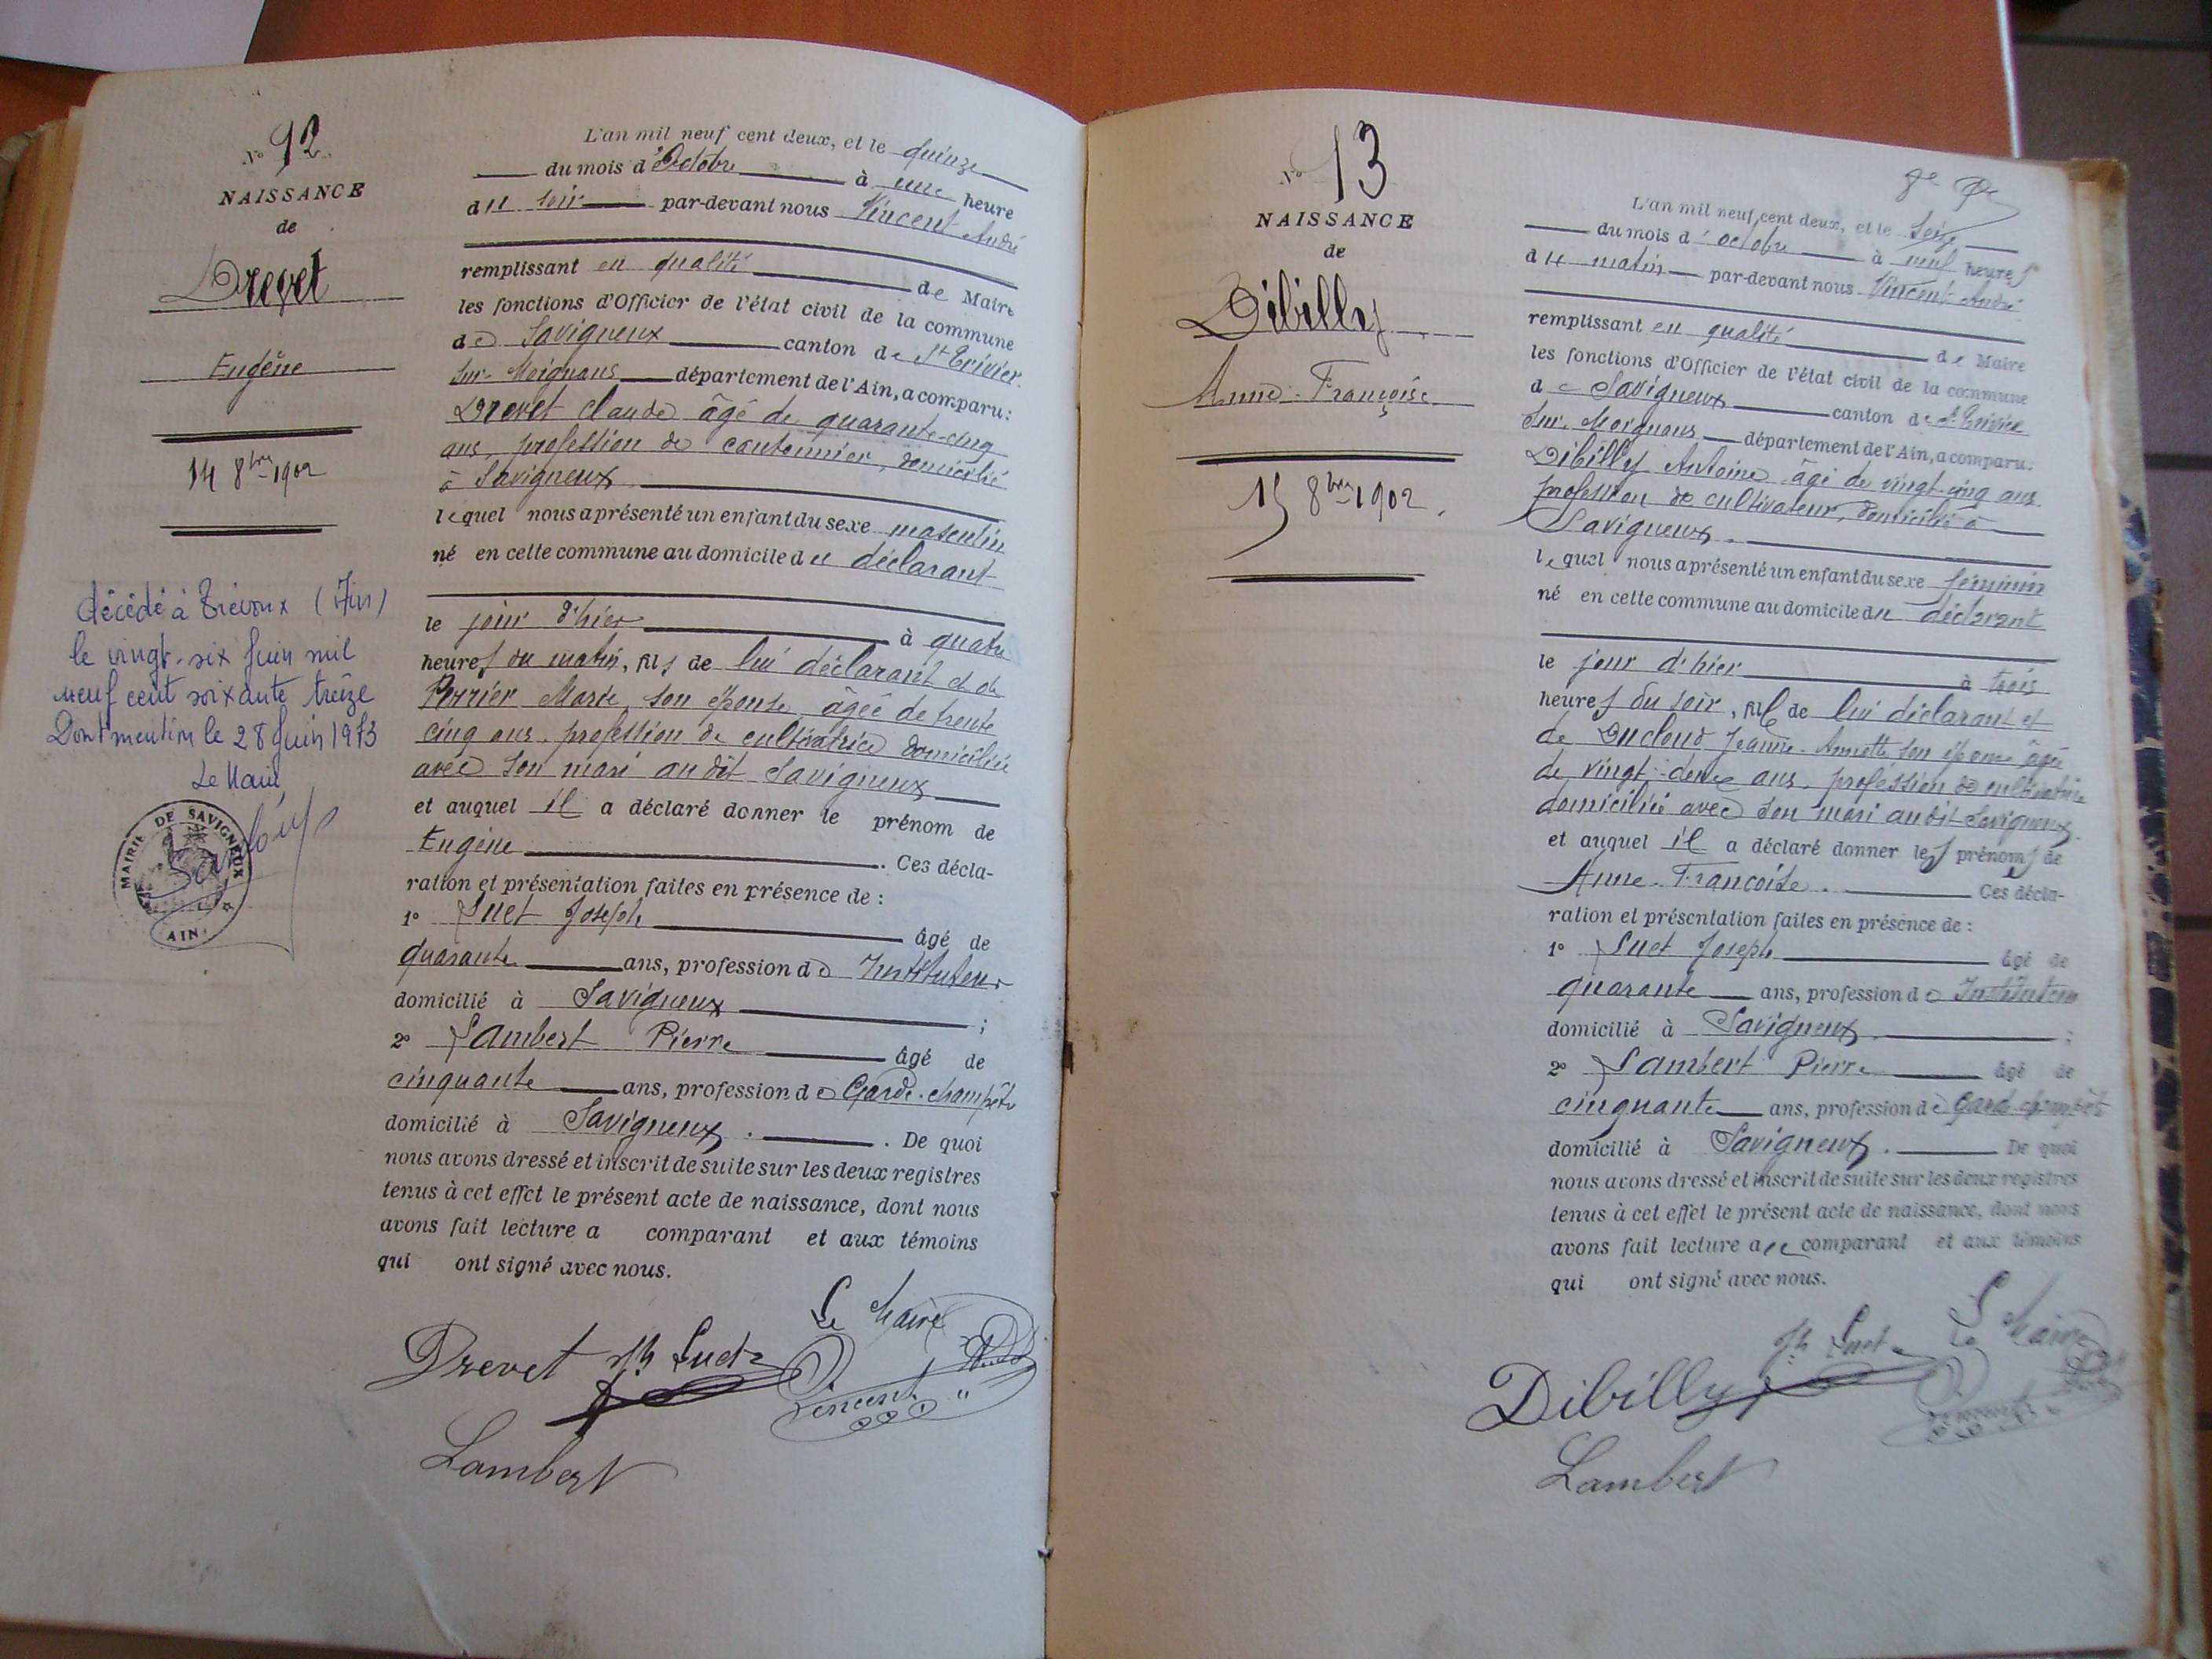 N° 12
NAISSANCE
de
Drevet
Eugène
14 8bre 1902
décédé à Trévoux (Ain)
le vingt-six juin mil
neuf cent soixante treize
Dont mention le 28 juin 1973
Le Maire
MAIRIE DE SAVIGNEUX
AIN
L'an mil neuf cent deux, et le quinze
du mois d'Octobre à une heure
du soir par-devant nous Vincent André
remplissant en qualité de Maire
les fonctions d'Officier de l'état civil de la commune
de Savigneux canton de St Trivier
sur-Moignans département de l'Ain, a comparu:
Drevet Claude âgé de quarante-cinq
ans, profession de cantonnier, domicilié
à Savigneux
lequel nous a présenté un enfant du sexe masculin
né en cette commune au domicile du déclarant
le jour d'hier à quatre
heures du matin, fils de lui déclarant et de
Perrier Marie son épouse âgée de trente
cinq ans, profession de cultivatrice domiciliée
avec son mari au dit Savigneux
et auquel il a déclaré donner le prénom de
Eugène. Ces décla-
ration et présentation faites en présence de :
1° Suet Joseph âgé de
quarante ans, profession de Instituteur
domicilié à Savigneux ;
2° Lambert Pierre âgé de
cinquante ans, profession de Garde-champêtre
domicilié à Savigneux. De quoi
nous avons dressé et inscrit de suite sur les deux registres
tenus à cet effet le présent acte de naissance, dont nous
avons fait lecture a comparant et aux témoins
qui ont signé avec nous.
Le Maire
Drevet Jh Suet Vincent André
Lambert
N° 13
NAISSANCE
de
Dibilly
Anne-Françoise
15 8bre 1902.
L'an mil neuf cent deux, et le seize
du mois d'octobre à neuf heures
du matin par-devant nous Vincent André
remplissant en qualité de Maire
les fonctions d'Officier de l'état civil de la commune
de Savigneux canton de St Trivier
sur-Moignans département de l'Ain, a comparu.
Dibilly Antoine âgé de vingt-cinq ans
profession de cultivateur, domicilié à
Savigneux.
lequel nous a présenté un enfant du sexe féminin
né en cette commune au domicile du déclarant
le jour d'hier à trois
heures du soir, fille de lui déclarant et
de Ducloud Jeanne-Annette son épouse âgée
de vingt-deux ans, profession de cultivatrice
domiciliée avec son mari au dit Savigneux.
et auquel il a déclaré donner les prénoms de
Anne-Françoise. Ces décla-
ration et présentation faites en présence de :
1° Suet Joseph âgé de
quarante ans, profession de Instituteur
domicilié à Savigneux ;
2° Lambert Pierre âgé de
cinquante ans, profession de Garde-champêtre
domicilié à Savigneux. De quoi
nous avons dressé et inscrit de suite sur les deux registres
tenus à cet effet le présent acte de naissance, dont nous
avons fait lecture au comparant et aux témoins
qui ont signé avec nous.
Jh Suet Le Maire
Dibilly Vincent
Lambert